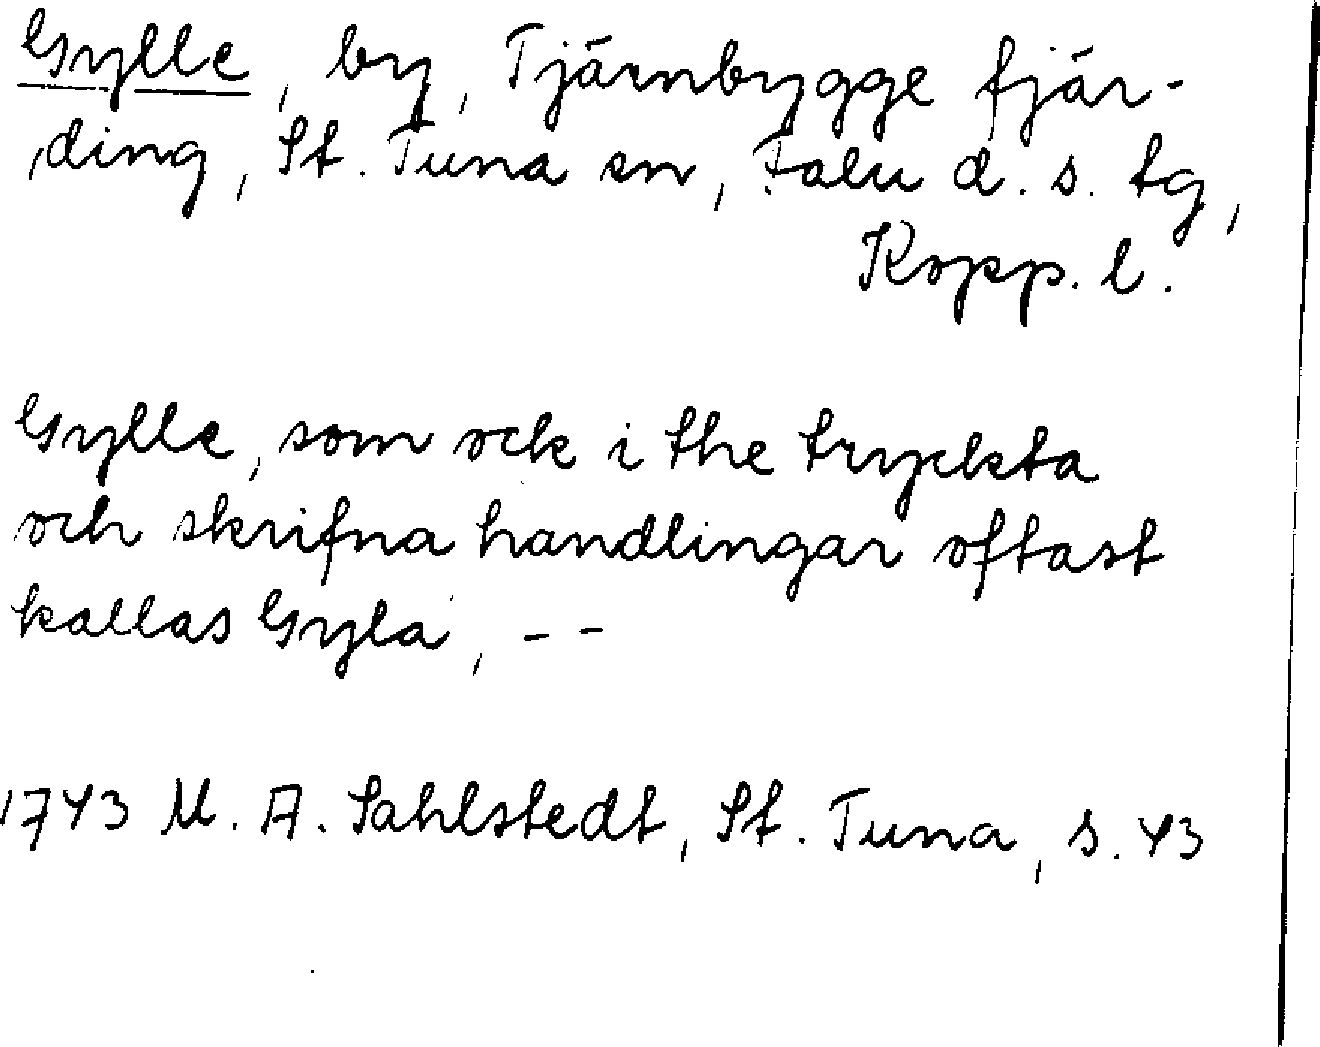 Gylle, by, Tjärnbygge fjär-
ding, St. Tuna sn, Falu d. s. tg,
Kopp. l.
Gylle, som ock i the tryckta
och skrifna handlingar oftast
kallas Gyla, - -
1743 M. A. Sahlstedt, St. Tuna, s. 43